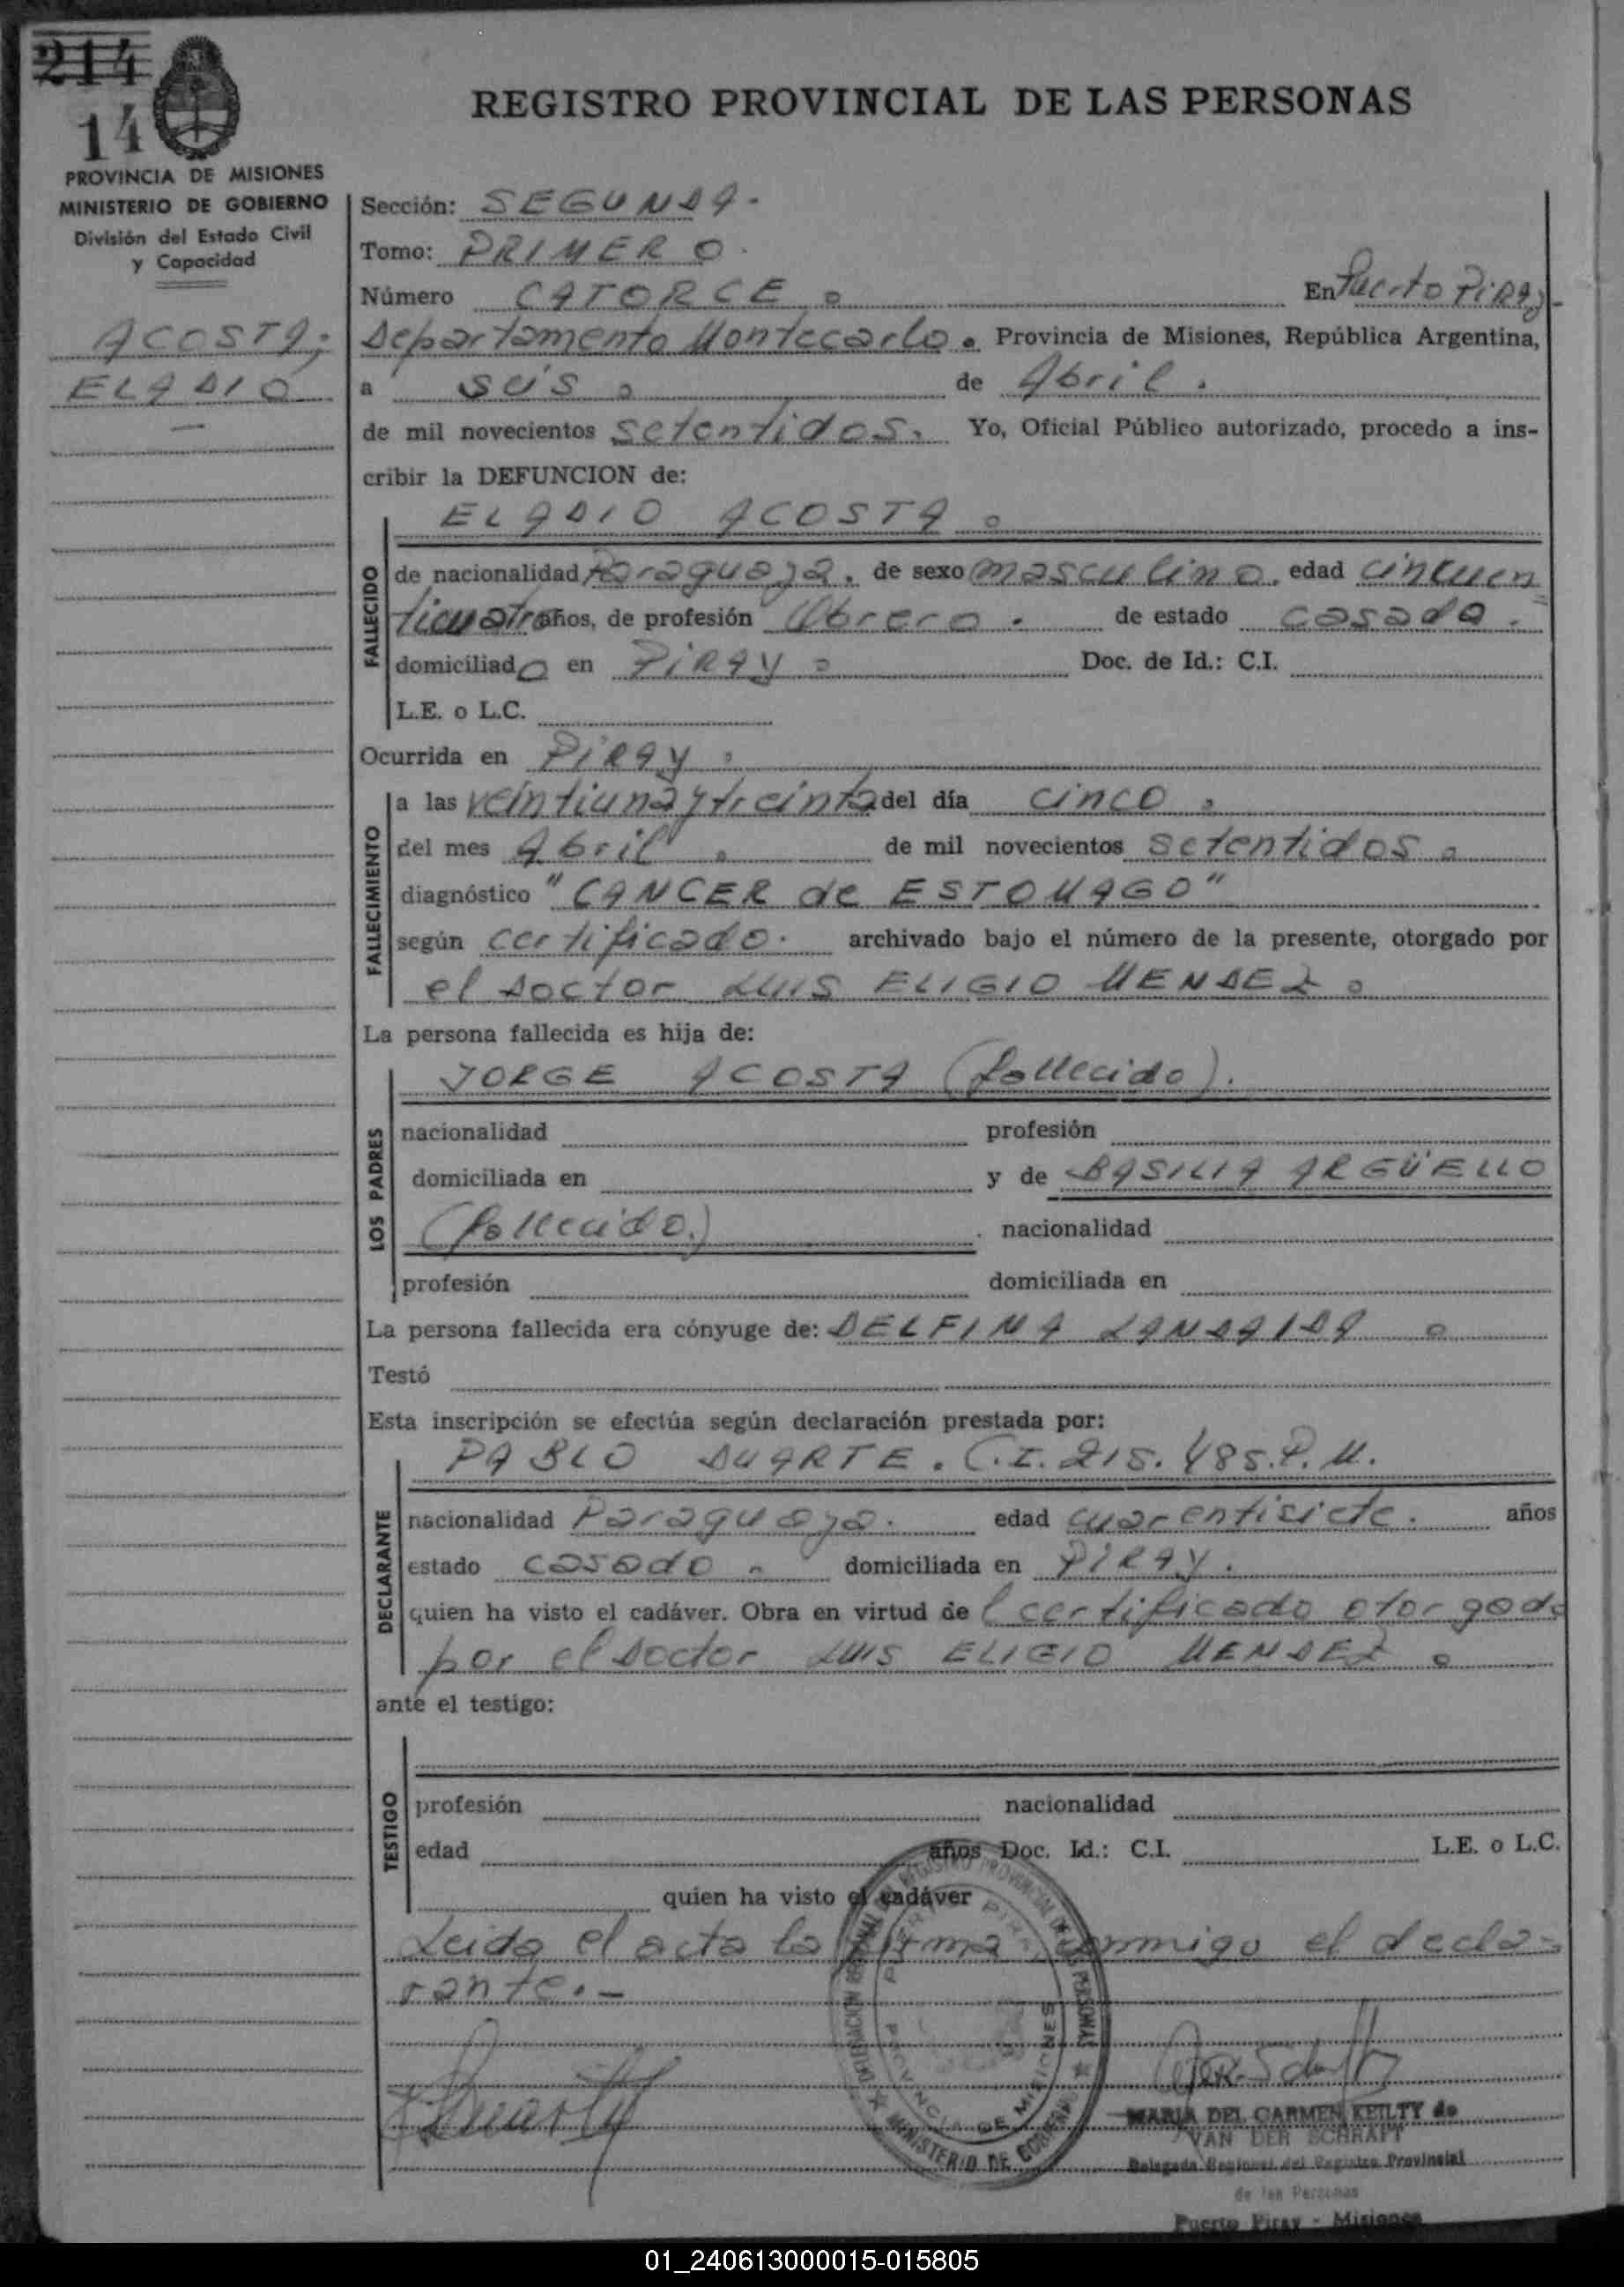 214
14
REGISTRO PROVINCIAL DE LAS PERSONAS
PROVINCIA DE MISIONES
MINISTERIO DE GOBIERNO
División del Estado Civil
y Capacidad
ACOSTA;
ELADIO
Sección: SEGUNDA.
Tomo: PRIMERO.
Número CATORCE. En Puerto PiRAy-
Departamento Montecarlo. Provincia de Misiones, República Argentina,
a seis. de Abril.
de mil novecientos setentidos. Yo, Oficial Público autorizado, procedo a ins-
cribir la DEFUNCION de:
ELADIO ACOSTA.
FALLECIDO
de nacionalidad Paraguaya. de sexo masculino. edad cincuen
ticuatro años, de profesión Obrero. de estado casado.
domiciliado en PiRAy. Doc. de Id.: C.I.
L.E. o L.C.
Ocurrida en PiRAy.
FALLECIMIENTO
a las veintiuna y treinta del día cinco.
del mes Abril. de mil novecientos setentidos.
diagnóstico "CANCER de ESTOMAGO"
según certificado. archivado bajo el número de la presente, otorgado por
el Doctor LUIS ELIGIO MENDEZ.
La persona fallecida es hija de:
LOS PADRES
JORGE ACOSTA (fallecido).
nacionalidad profesión
domiciliada en y de BASILIA ARGÜELLO
(fallecido.) . nacionalidad
profesión domiciliada en
La persona fallecida era cónyuge de: DELFINA LANDAIDA.
Testó
Esta inscripción se efectúa según declaración prestada por:
DECLARANTE
PABLO DUARTE. C.I. 215.485.P.M.
nacionalidad Paraguaya. edad cuarentisiete. años
estado casado. domiciliada en PiRAy.
quien ha visto el cadáver. Obra en virtud del certificado otorgado
por el Doctor LUIS ELIGIO MENDEZ.
ante el testigo:
TESTIGO
profesión nacionalidad
edad años Doc. Id.: C.I. L.E. o L.C.
quien ha visto el cadáver
Leida el acta la firma conmigo el decla-
rante.-
PROVINCIA DE MISIONES
MINISTERIO DE GOBIERNO
MARIA DEL CARMEN KEILTY de
VAN DER SCHRAFT
Delegada Regional del Registro Provincial
de las Personas
Puerto Piray - Misiones
01_240613000015-015805